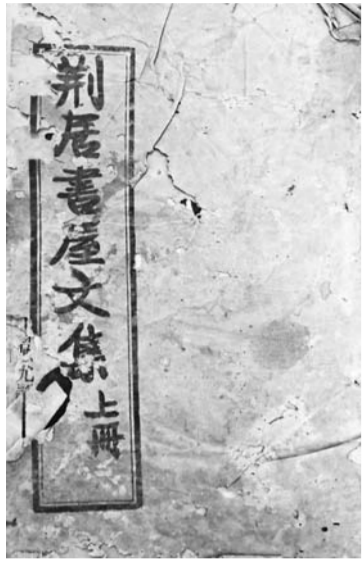 荆居書屋文集
上冊